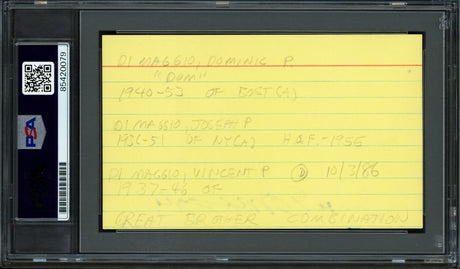 PSA
85420079
DI MAGGIO, DOMINIC P.
"DOM"
1940-53 OF BOST(A)
DI MAGGIO, JOSEPH P
1936-51 OF NY(A) H.O.F.-1955
DI MAGGIO, VINCENT P D 10/3/86
1937-46 OF
GREAT BROTHER COMBINATION